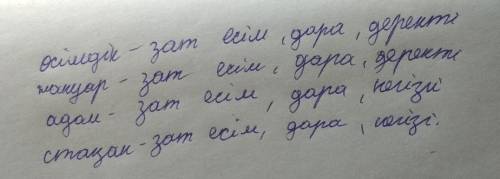 өсімдік - зат есім, дара, деректі
жануар - зат есім, дара, деректі
адам - зат есім, дара, негізгі
стақан - зат есім, дара, негізгі.